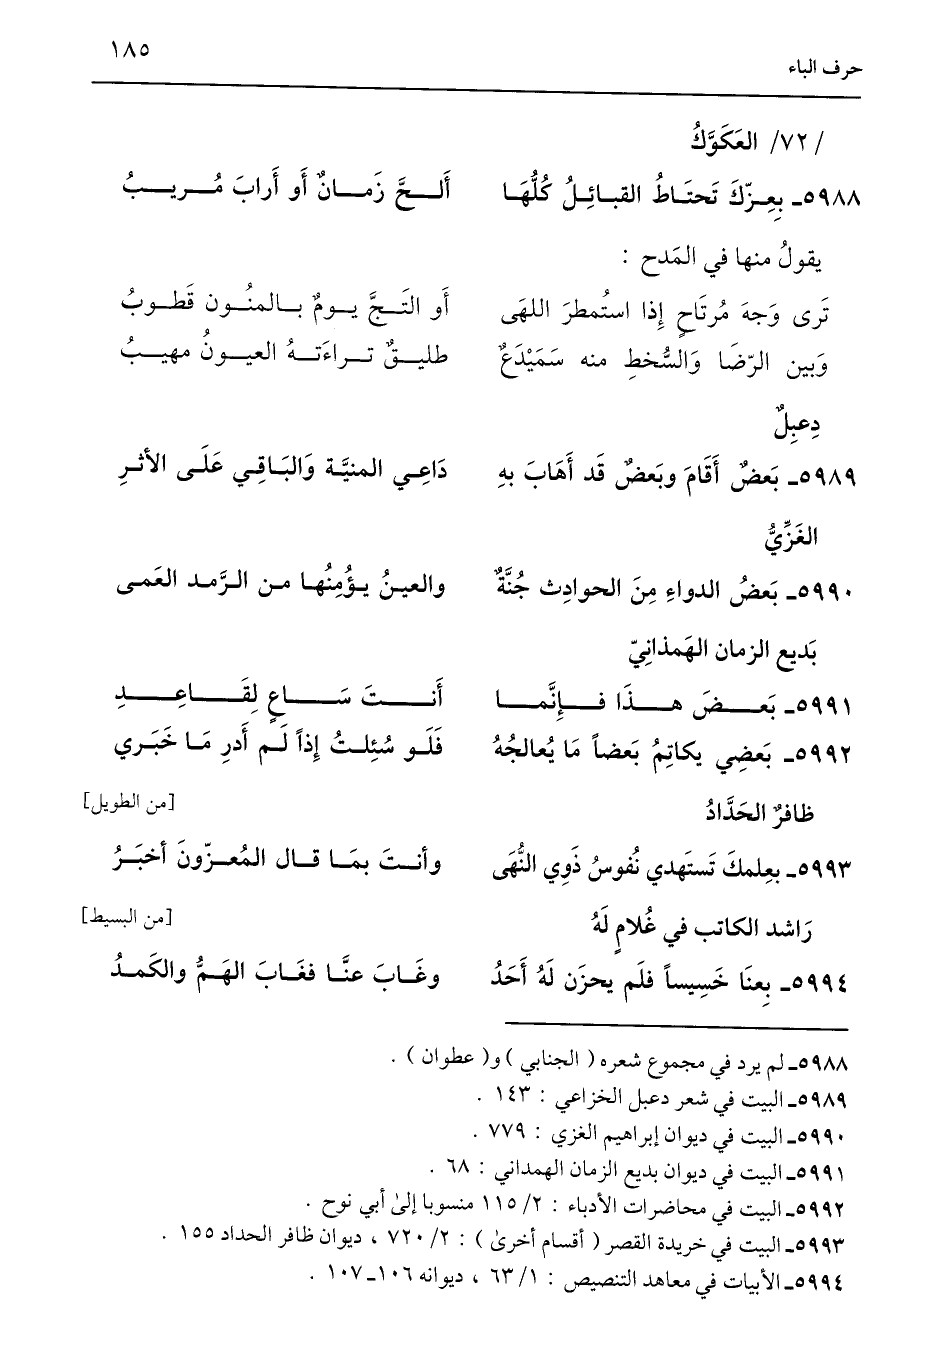 ١٨٥
حرف الباء
/ ٧٢/ العَكَوَّكُ
٥٩٨٨ـ بِعِـزّكَ تَحتَـاطُ القبـائِـلُ كُلُّهَـا أَلـــحَّ زَمـــانٌ أَو أَرابَ مُـــريـــبُ
يقولُ منها في المَدح :
تَرى وَجهَ مُرتَاحٍ إِذا استُمطرَ اللهَى أَو التَــجَّ يــومٌ بــالمنُــون قَطــوبُ
وَبين الرّضَا وَالسُّخطِ منه سَمَيْدَعٌ طليــقٌ تــراءَتــهُ العيــونُ مهيــبُ
دِعبِلٌ
٥٩٨٩ـ بَعضٌ أَقَامَ وبَعضٌ قَد أَهَابَ بهِ دَاعِـي المنيَّـة وَالبَـاقِـي عَلَـى الأثـرِ
الغَزِّيُّ
٥٩٩٠ـ بَعضُ الدواءِ مِنَ الحوادِث جُنَّةٌ والعيـنُ يـؤُمِنُهـا مـن الـرَّمـد العَمـى
بَديع الزمان الهَمذانِيّ
٥٩٩١ـ بَعـــضَ هـــذَا فـــإِنَّمـــا أَنـــتَ سَـــاعٍ لِقَـــاعِـــدِ
٥٩٩٢ـ بَعضِي يكاتِمُ بَعضاً مَا يُعالجُهُ فَلَـو سُئِلـتُ إِذاً لَـم أَدرِ مَـا خَبَـري
ظافرٌ الحَدَّادُ [من الطويل]
٥٩٩٣ـ بعِلمكَ تَستَهدي نُفوسُ ذَوِي النُّهَى وأنـتَ بمَـا قـال المُعـزّونَ أخبَـرُ
رَاشد الكاتب في غُلامٍ لَهُ [من البسيط]
٥٩٩٤ـ بِعنَا خَسِيساً فلَم يحزَن لَهُ أَحَدُ وغَـابَ عنَّـا فغَـابَ الهَـمُّ والكَمـدُ
٥٩٨٨ـ لم يرد في مجموع شعره ( الجنابي ) و( عطوان ) .
٥٩٨٩ـ البيت في شعر دعبل الخزاعي : ١٤٣ .
٥٩٩٠ـ البيت في ديوان إبراهيم الغزي : ٧٧٩ .
٥٩٩١ـ البيت في ديوان بديع الزمان الهمداني : ٦٨ .
٥٩٩٢ـ البيت في محاضرات الأدباء : ٢/ ١١٥ منسوبا إلىٰ أبي نوح .
٥٩٩٣ـ البيت في خريدة القصر ( أقسام أخرىٰ ) : ٢/ ٧٢٠ ، ديوان ظافر الحداد ١٥٥ .
٥٩٩٤ـ الأبيات في معاهد التنصيص : ١/ ٦٣ ، ديوانه ١٠٦ـ١٠٧ .